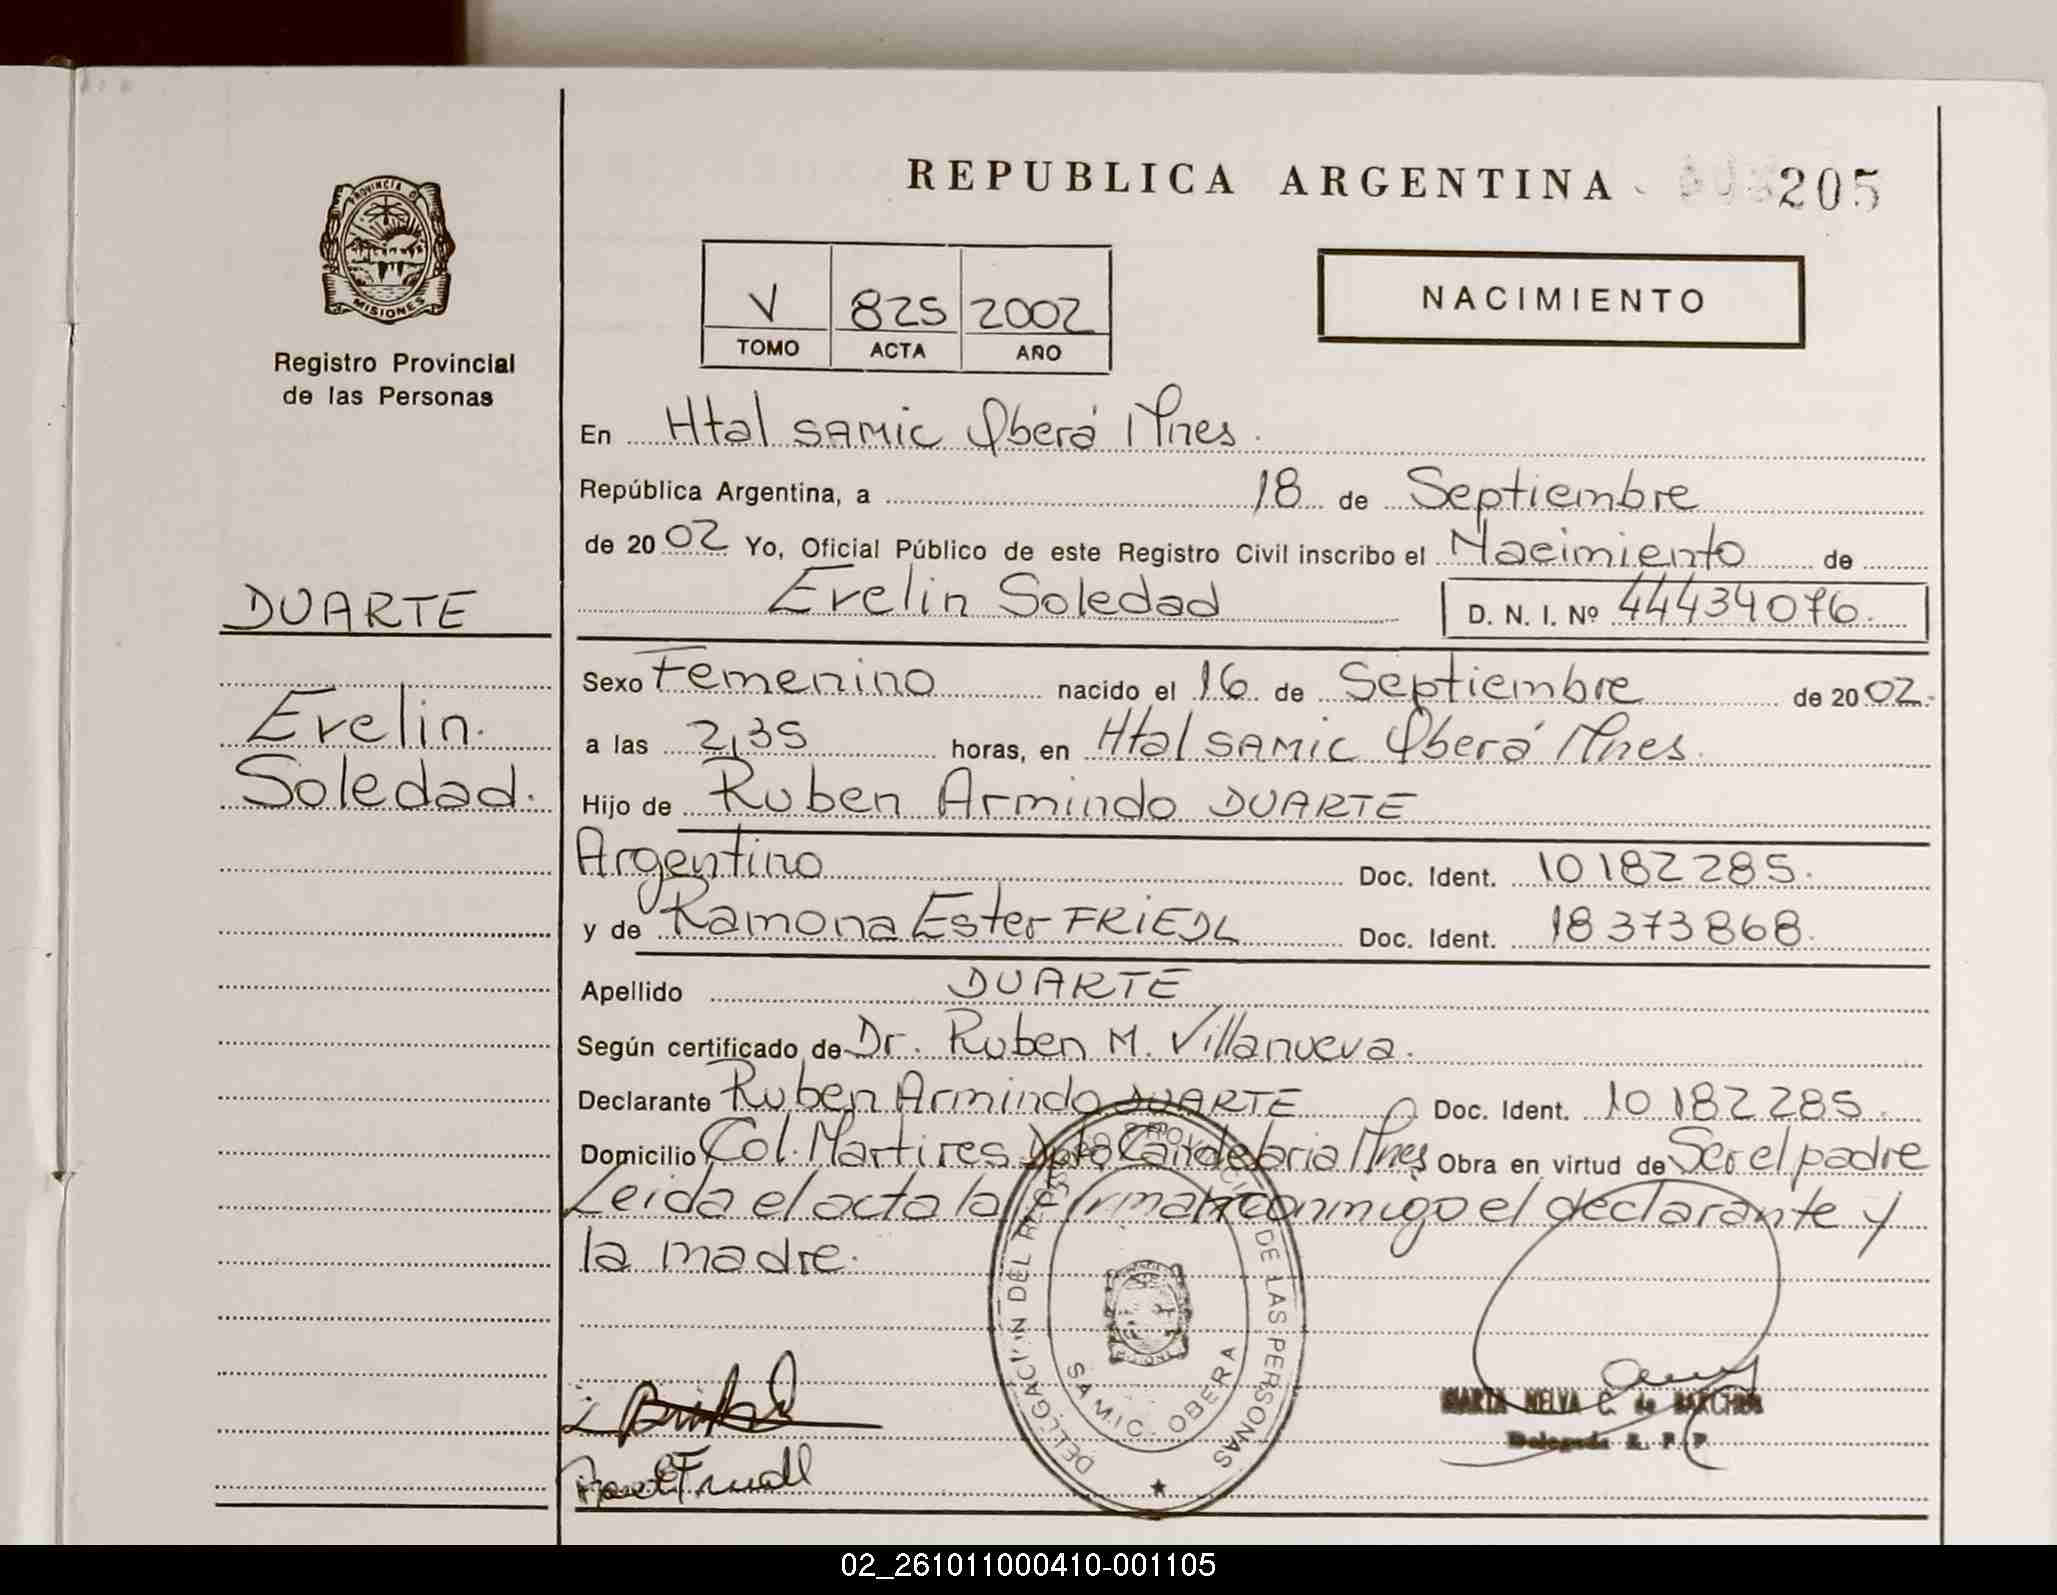 REPUBLICA ARGENTINA
205
PROVINCIA D
MISIONES
Registro Provincial
de las Personas
V 825 2002
TOMO ACTA AÑO
NACIMIENTO
En Htal SAMIC Oberá Mnes.
República Argentina, a 18 de Septiembre
de 2002 Yo, Oficial Público de este Registro Civil inscribo el Nacimiento de
Evelin Soledad D. N. I. Nº 44434076.
DUARTE
Evelin.
Soledad.
Sexo Femenino nacido el 16 de Septiembre de 2002.
a las 2,35 horas, en Htal SAMIC Oberá Mnes.
Hijo de Ruben Armindo DUARTE
Argentino Doc. Ident. 10182285.
y de Ramona Ester FRIEDL Doc. Ident. 18373868.
Apellido DUARTE
Según certificado de Dr. Ruben M. Villanueva.
Declarante Ruben Armindo DUARTE Doc. Ident. 10182285.
Domicilio Col. Martires Dpto Candelaria Mnes Obra en virtud de Ser el padre
Leida el acta la firman conmigo el declarante y
la madre.
DELEGACION DEL REGISTRO PROVINCIAL DE LAS PERSONAS
S A.M.I.C. OBERA
MARTA NELVA C. de
Delegada R. P. P.
02_261011000410-001105